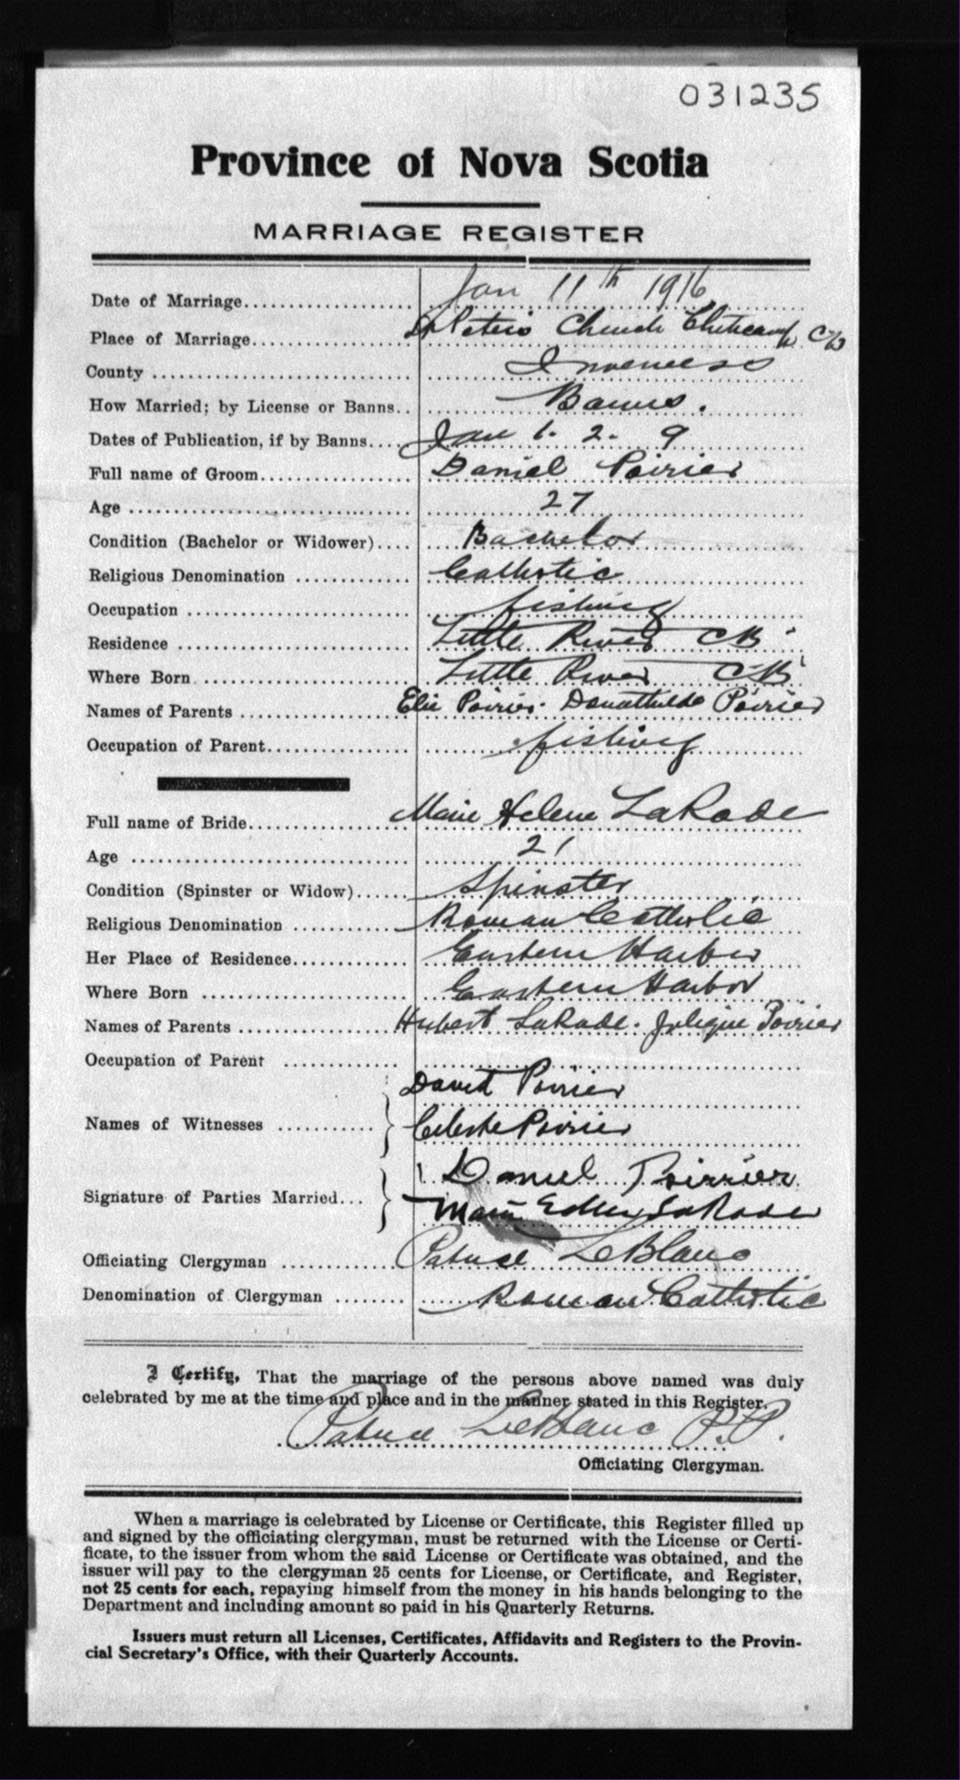 031235
Province of Nova Scotia
MARRIAGE REGISTER
Date of Marriage.................. Jan 11th 1916
Place of Marriage................. St Peters Church Cheticamp CB
County ........................... Inverness
How Married; by License or Banns.. Banns.
Dates of Publication, if by Banns.... Jan 1. 2. 9
Full name of Groom................ Daniel Poirier
Age .............................. 27
Condition (Bachelor or Widower).... Bachelor
Religious Denomination ............ Catholic
Occupation ........................ fishing
Residence ......................... Little River CB
Where Born ........................ Little River CB
Names of Parents .................. Elie Poirier. Donathilde Poirier
Occupation of Parent............... fishing
Full name of Bride................. Marie Helene LaRade
Age ............................... 21
Condition (Spinster or Widow)...... Spinster
Religious Denomination ............ Roman Catholic
Her Place of Residence............. Eastern Harbor
Where Born ........................ Eastern Harbor
Names of Parents .................. Hubert LaRade. Poirier
Occupation of Parent .............
David Poirier
Names of Witnesses ........... } Celeste Poirier
Daniel Poirrier
Signature of Parties Married... } Marie LaRade
Officiating Clergyman ............. Patrice LeBlanc
Denomination of Clergyman ........ Roman Catholic
I Certify, That the marriage of the persons above named was duly
celebrated by me at the time and place and in the manner stated in this Register.
Patrice LeBlanc P.P.
Officiating Clergyman.
When a marriage is celebrated by License or Certificate, this Register filled up
and signed by the officiating clergyman, must be returned with the License or Certi-
ficate, to the issuer from whom the said License or Certificate was obtained, and the
issuer will pay to the clergyman 25 cents for License, or Certificate, and Register,
not 25 cents for each, repaying himself from the money in his hands belonging to the
Department and including amount so paid in his Quarterly Returns.
Issuers must return all Licenses, Certificates, Affidavits and Registers to the Provin-
cial Secretary's Office, with their Quarterly Accounts.